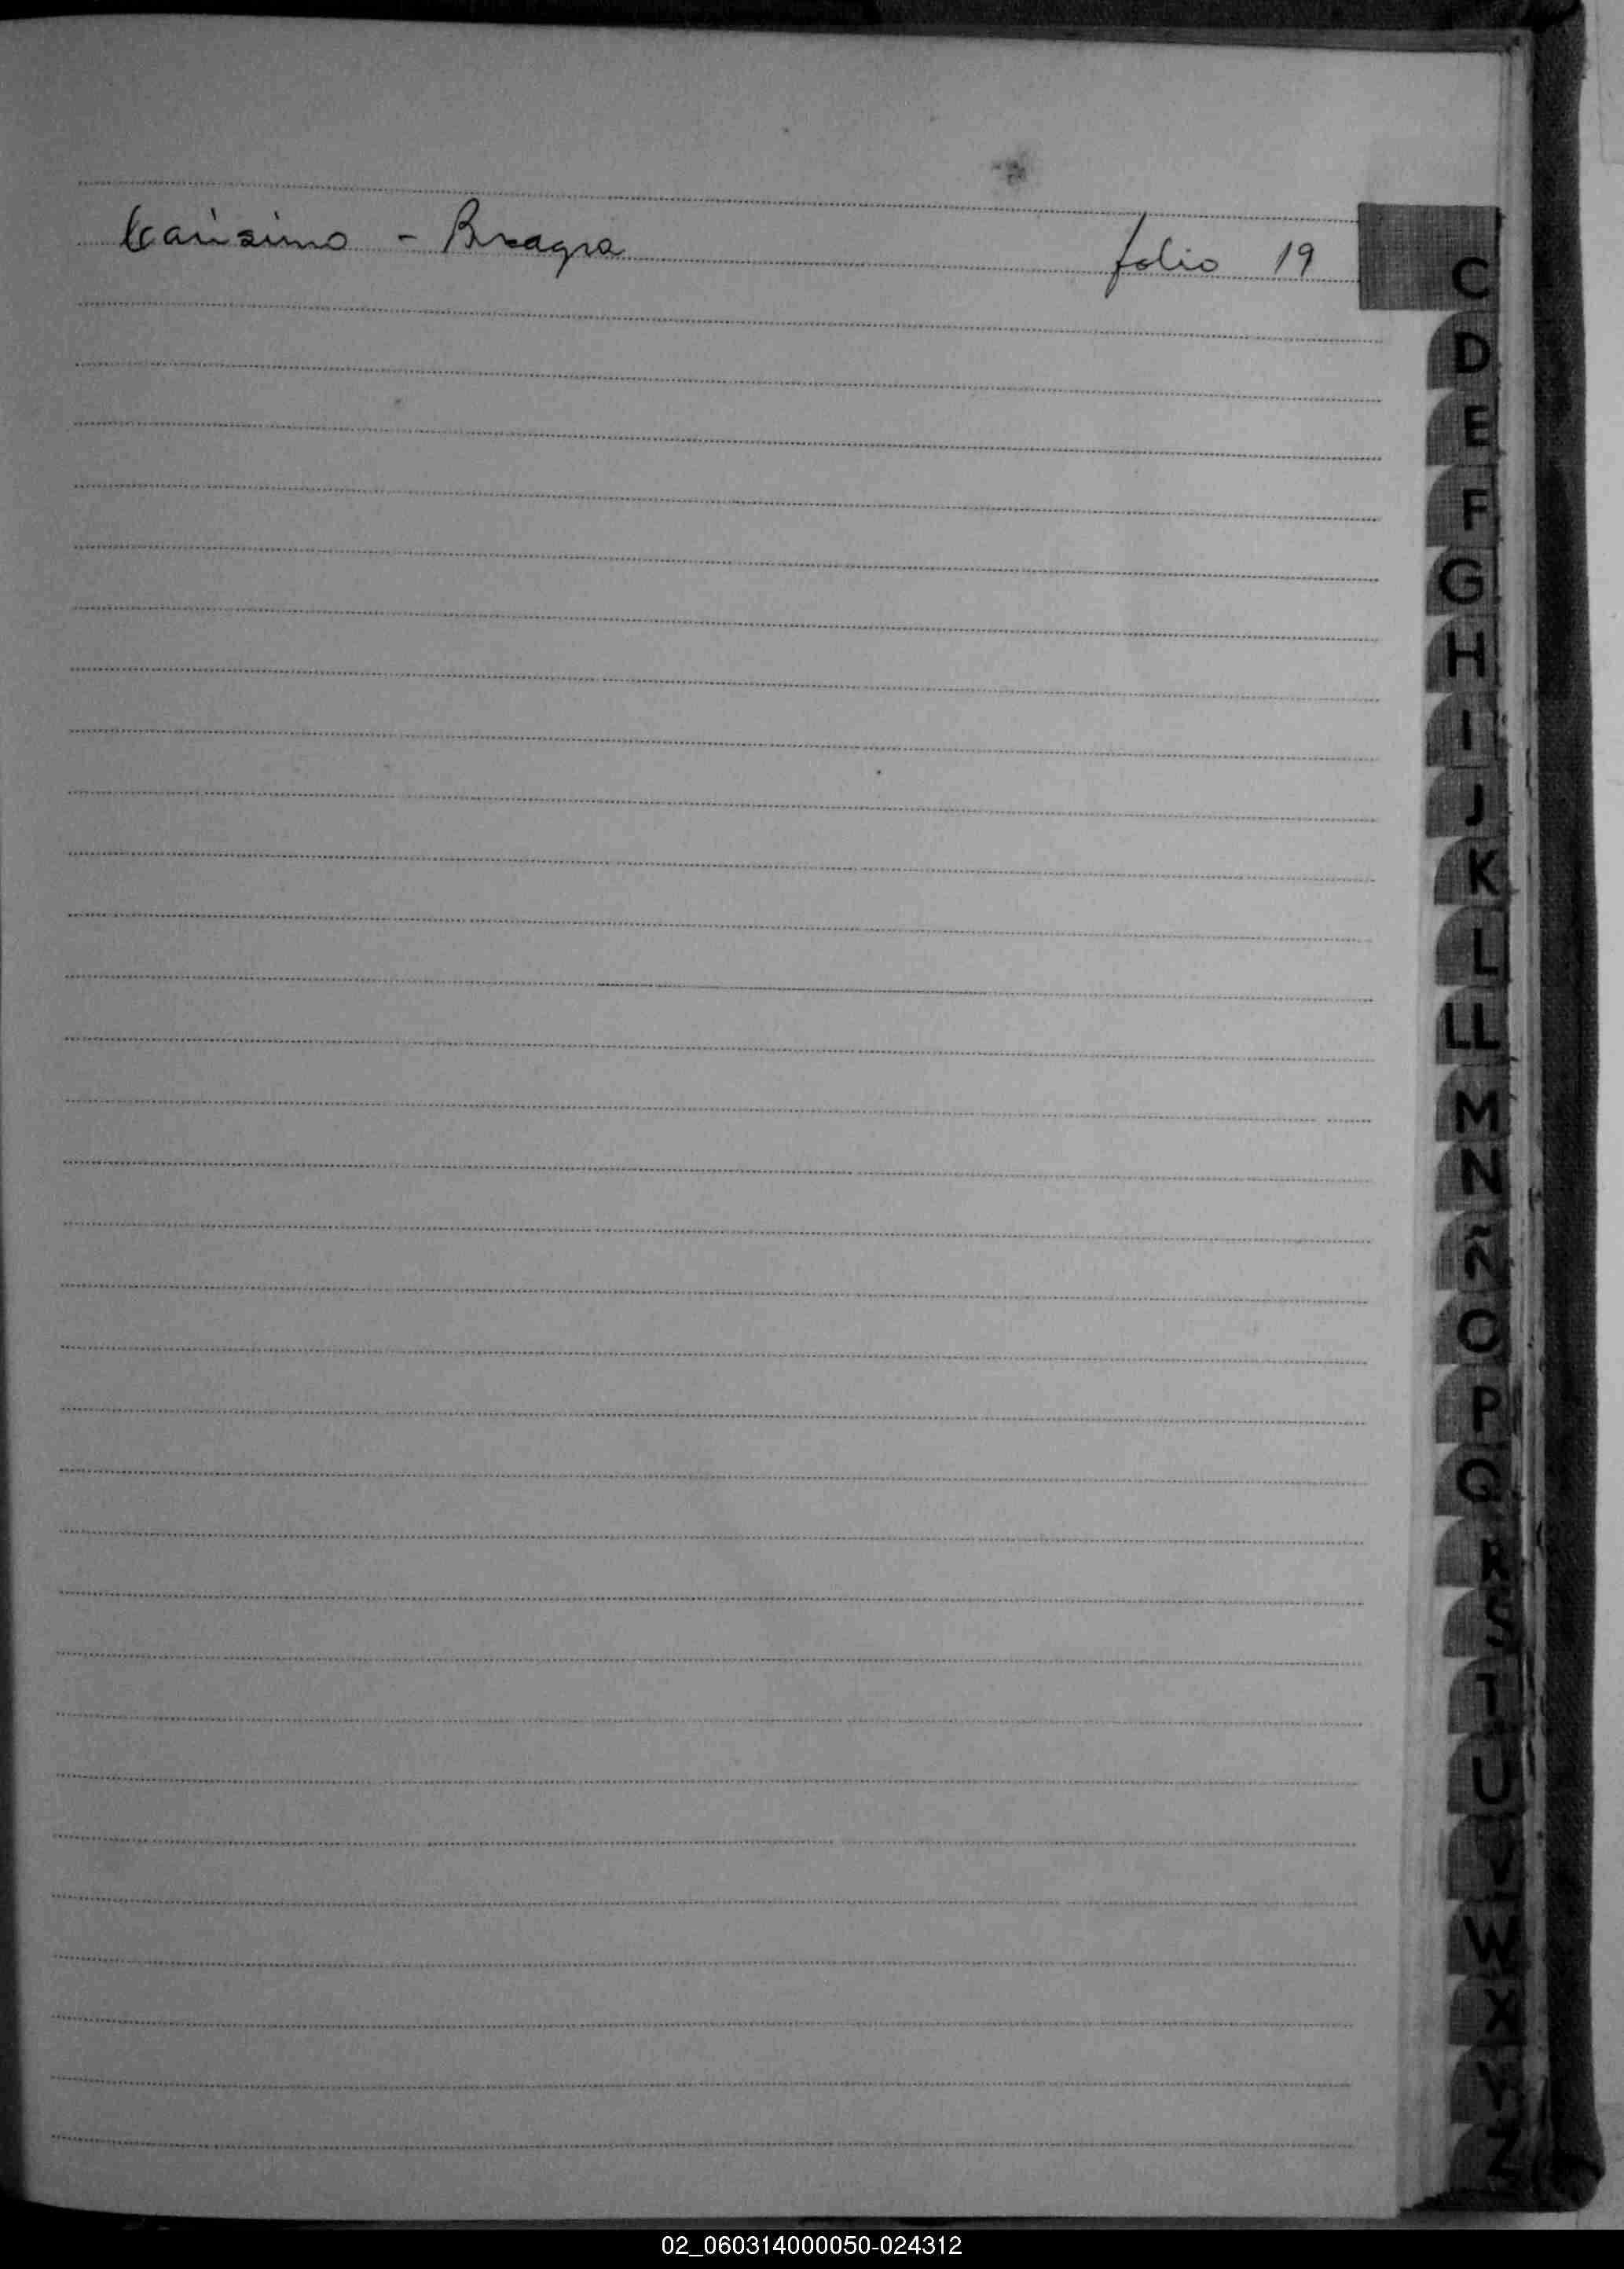 Carisimo - Bisagra folio 19
C
D
E
F
G
H
I
J
K
L
LL
M
N
Ñ
O
P
Q
R
S
T
U
V
W
X
Y
Z
02_060314000050-024312